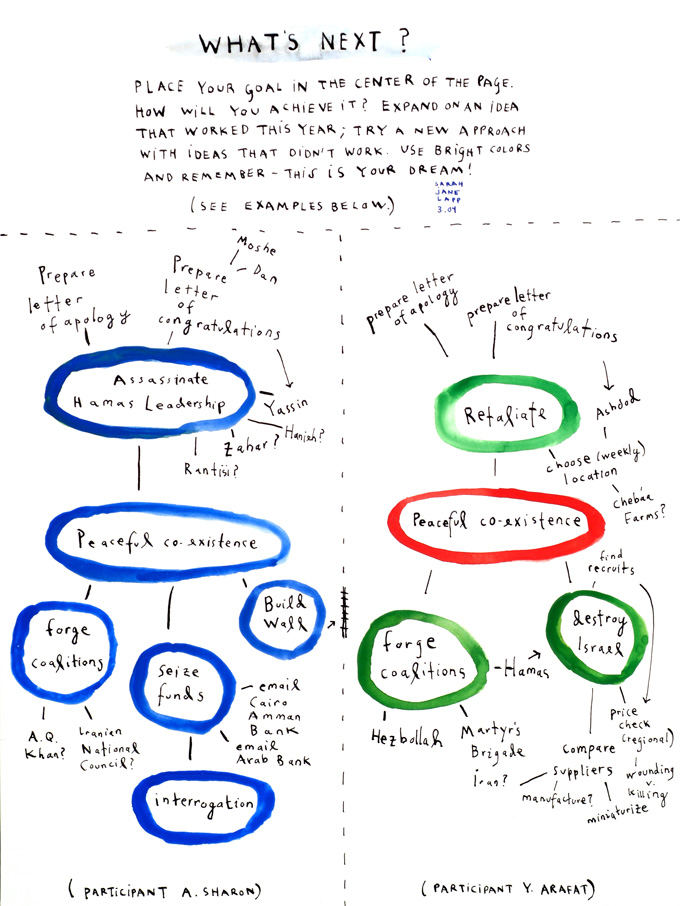 WHAT'S NEXT?
PLACE YOUR GOAL IN THE CENTER OF THE PAGE.
HOW WILL YOU ACHIEVE IT? EXPAND ON AN IDEA
THAT WORKED THIS YEAR; TRY A NEW APPROACH
WITH IDEAS THAT DIDN'T WORK. USE BRIGHT COLORS
AND REMEMBER - THIS IS YOUR DREAM!
(SEE EXAMPLES BELOW.)
SARAH
JANE
LAPP
3.04
Prepare
letter
of apology
Prepare
letter
of
congratulations
Moshe
Dan
Assassinate
Hamas Leadership
Yassin
Hanieh?
Zahar?
Rantisi?
Peaceful co-existence
forge
coalitions
A.Q.
Khan?
Iranian
National
Council?
seize
funds
email
Cairo
Amman
Bank
email
Arab Bank
Build
Wall
interrogation
(PARTICIPANT A. SHARON)
prepare letter
of apology
prepare letter
of
congratulations
Retaliate
Ashdod
choose (weekly)
location
Chebaa
Farms?
Peaceful co-existence
find
recruits
forge
coalitions
Hamas
Hezbollah
Martyr's
Brigade
destroy
Israel
price
check
(regional)
compare
suppliers
Iran?
manufacture?
miniaturize
wounding
v.
killing
(PARTICIPANT Y. ARAFAT)